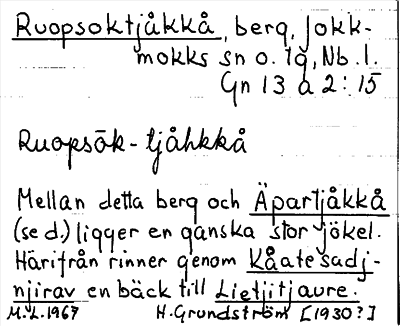 Ruopsoktjåkkå, berg, Jokk-
mokks sn o. tg, Nb. l.
Gn 13 a 2:15
Ruopsōk-tjåhkkå
Mellan detta berg och Äpartjåkkå
(se d.) ligger en ganska stor jökel.
Härifrån rinner genom Kåatesadj-
njirav en bäck till Lietjitjaure.
M.L. 1967 H. Grundström [1930?]